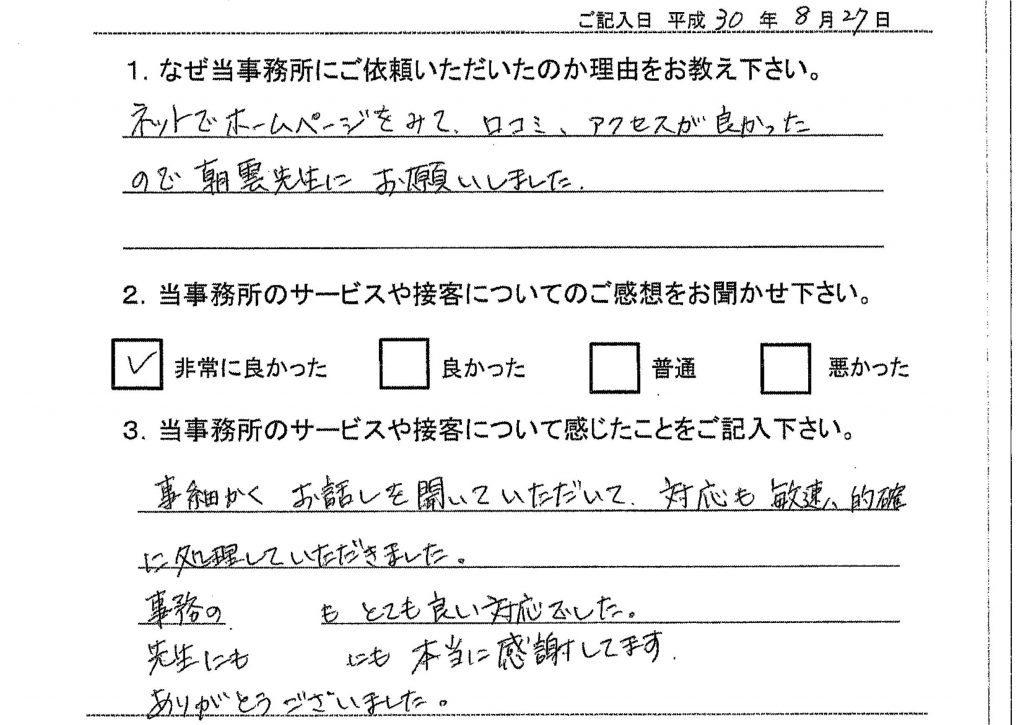 ご記入日 平成 30 年 8 月 27 日
1. なぜ当事務所にご依頼いただいたのか理由をお教え下さい。
ネットでホームページをみて、口コミ、アクセスが良かった
ので 朝雲先生に お願いしました.
2. 当事務所のサービスや接客についてのご感想をお聞かせ下さい。
非常に良かった 良かった 普通 悪かった
3. 当事務所のサービスや接客について感じたことをご記入下さい。
事細かく お話しを聞いていただいて、対応も 敏速、的確
に処理していただきました。
事務の も とても良い対応でした。
先生にも にも 本当に感謝してます.
ありがとうございました。